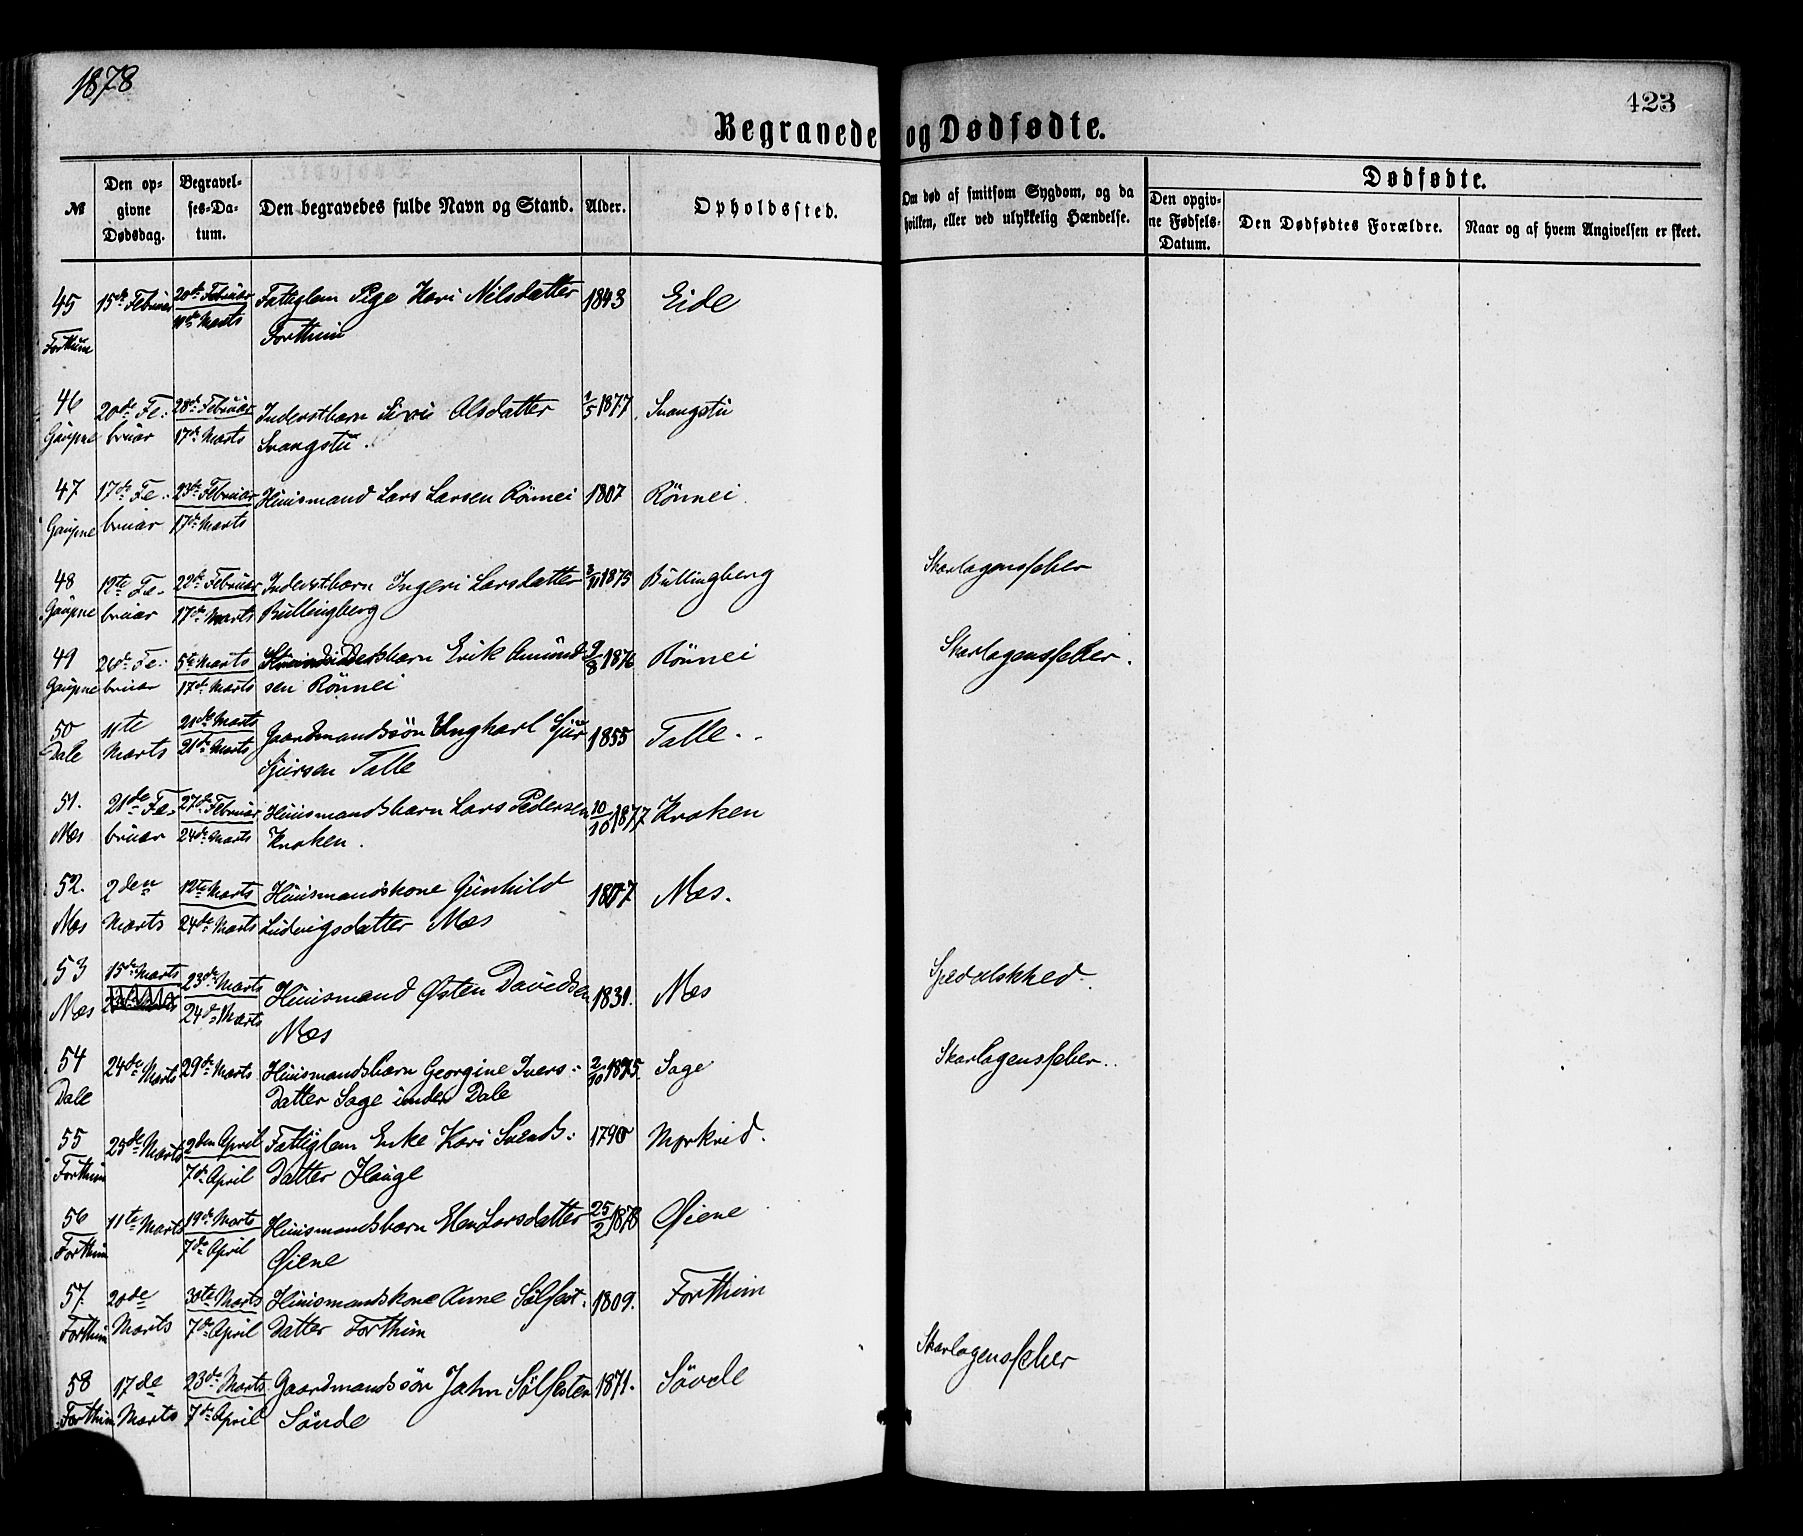 1878
423
Begravede og Dødfødte.
№ | Den opgivne Dødsdag. | Begravelses-Datum. | Den begravedes fulde Navn og Stand. | Alder. | Opholdssted. | Om død af smitsom Sygdom, og da hvilken, eller ved ulykkelig Hændelse. | Dødfødte. | Den opgivne Fødsels-Datum. | Den Dødfødtes Forældre. | Naar og af hvem Angivelsen er skeet.
45 15de Februar 20de Februar Fattiglem Pige Kari Nilsdatter 1843 Eide
Forthun Marts Forthun
46 20de Fe- 28de Februar Inderstbarn Siri Olsdatter 1/5 1877 Svangstu
Gaupne bruar 17de Marts Svangstu.
47 17de Fe- 23de Februar Huusmand Lars Larsen Rönnei 1807 Rönnei.
Gaupne bruar 17de Marts
48 12te Fe- 22de Februar Inderstbarn Ingeri Larsdatter 1875 Bullingberg Skarlagensfeber
Gaupne bruar 17de Marts Bullingberg
49 26de Fe- 5te Marts barn Erik Amund- 9/8 1876 Rönnei Skarlagensfeber.
Gaupne bruar 17de Marts sen Rönnei
50 11te 21de Marts Gaardmandssön Ungkarl Sjur 1855 Talle.
Dale Marts 21de Marts Sjursen Talle
51. 21de Fe- 27de Februar Huusmandsbarn Lars Pedersen 10/10 1877 Kroken
Næs bruar 24de Marts Kroken.
52. 2den 12te Marts Huusmandskone Gunhild 1807 Næs.
Næs Marts 24de Marts Ludvigsdatter Næs
53 15de Marts 23de Marts Huusmand Østen Davidsen 1831. Næs Spedalskhed.
Næs 24de Marts Næs
54 24de Marts 29de Marts Huusmandsbarn Georgine Ivers- 2/10 1875. Sage Skarlagensfeber.
Dale Datter Sage under Dale
55 25de Marts 2den April Fattiglem Enke Kari Svends- 1790 Mørkrid.
Forthun 7de April Datter Hauge
56 11te Marts 19de Marts Huusmandsbarn Elen Larsdatter 25/2 1878 Øiene
Forthun 7de April Øiene
57. 20de 30te Marts Huusmandskone Anne Sölfest- 1809. Forthun
Forthun Marts 7de April Datter Forthun
58 17de 23de Marts Gaardmandssön Jahn Sölfesten 1871. Sövde Skarlagensfeber
Forthun Marts 7de April Sövde